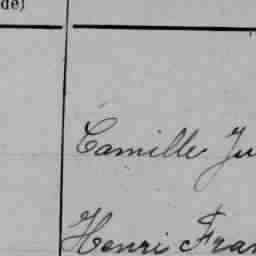 de)
Camille Ju
Henri Fran